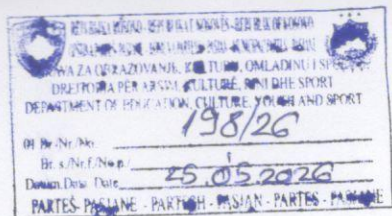 REPUBLIKA KOSOVO - REPUBLIKA E KOSOVËS - REPUBLIC OF KOSOVO
ZA OBRAZOVANJE, KULTURU, OMLADINU I SPORT
DREJTORIA PËR ARSIM, KULTURË, RINI DHE SPORT
DEPARTMENT OF EDUCATION, CULTURE, YOUTH AND SPORT
01 Br./Nr./No. 198/26
Br. s./Nr.f./No p./ 1
Datum, Data, Date 25.05.2026
PARTEŠ-PASJANE - PARTESH - PASJAN - PARTES - PASJANE